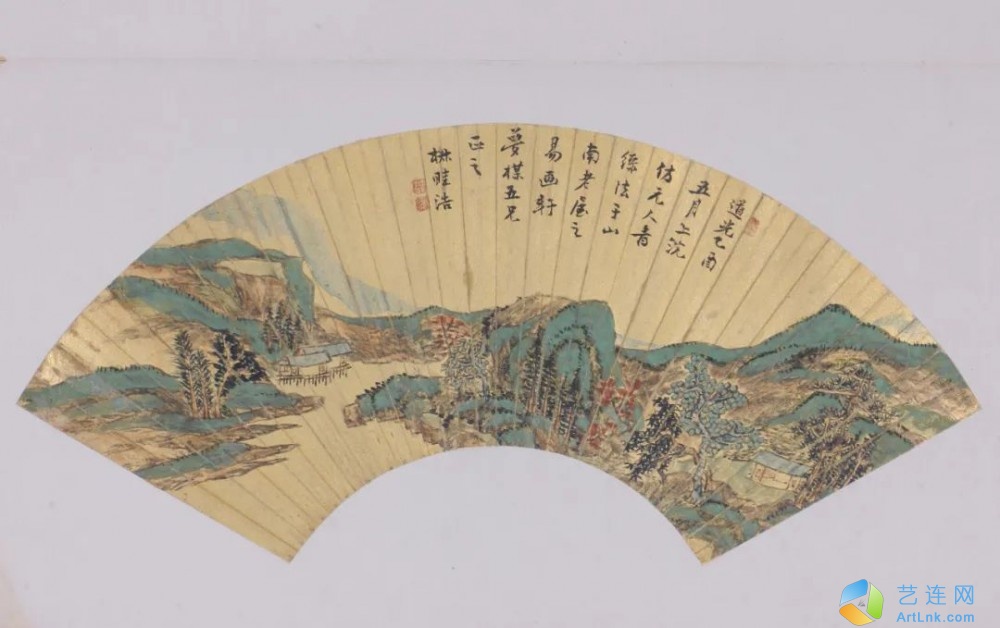 道光酉
五月上浣
仿元人青
綠法于山
南老屋之
易画軒
夢楳五兄
正之
畦浩
艺连网
ArtLnk.com